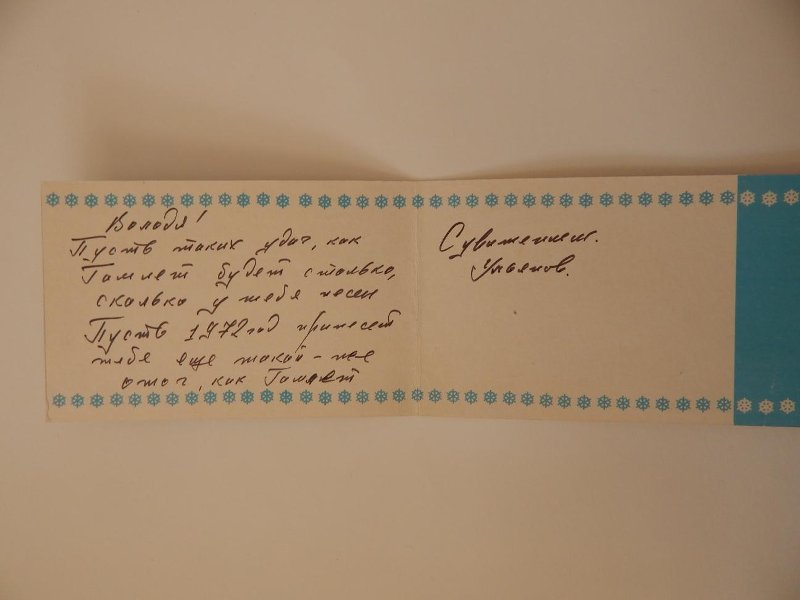 Володя!
Пусть таких удач, как
Гамлет будет столько,
сколько у тебя песен
Пусть 1972 год принесет
тебе еще такой-же
, как Гамлет
С уважением.
Ульянов.